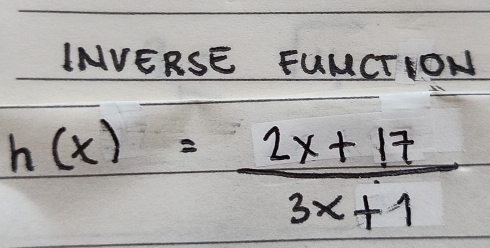 INVERSE FUNCTION
h(x) = 2x + 17
3x + 1